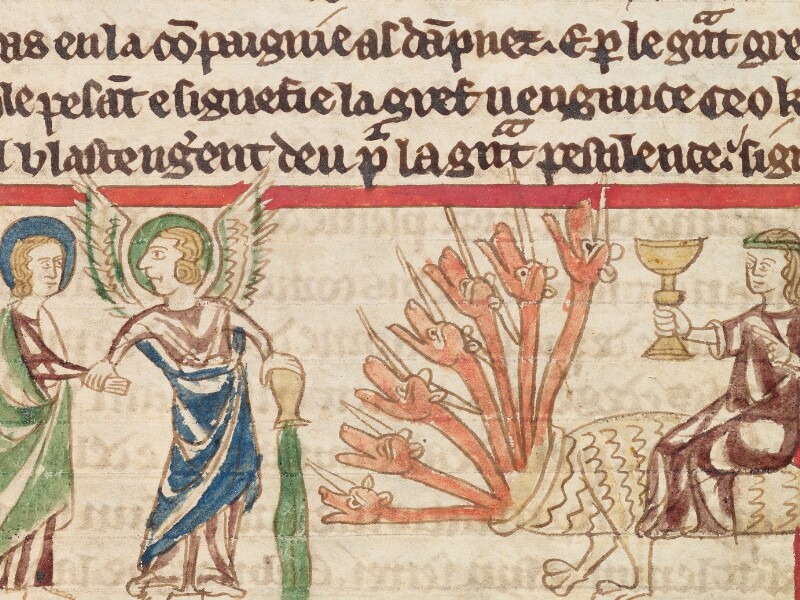 as en la co̅paignie as da̅pnez. E p̲ le gͣnt gre
le pesa̅t e signefie la gref uengance ceo k
l blasteng̓ent deu pͬ la gͣnt pestilence. sign